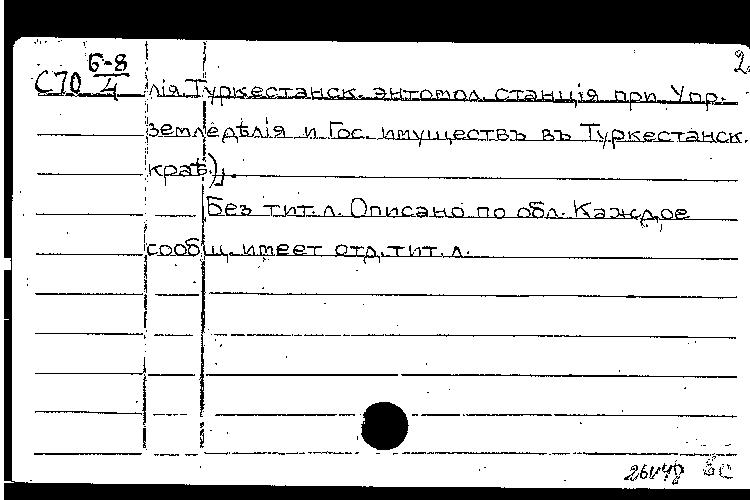 2.
С70 Б-8/4
лія. Туркестанск. энтомол. станція при Упр.
земледѣлія и Гос. имуществъ въ Туркестанск.
краѣ).
Без тит. л. Описано по обл. Каждое
сообщ. имеет отд. тит. л.